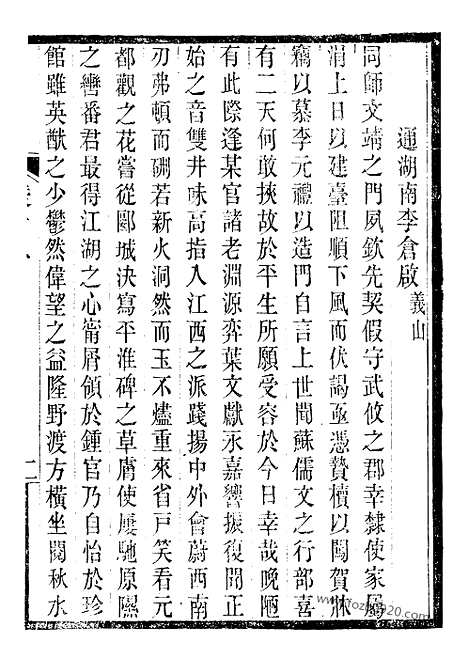 通湖南李倉啟義山
同師文靖之門夙欽先契假守武攸之郡幸隸使家屬
涓上日以建臺阻順下風而伏謁亟憑贄櫝以闖賀牀
竊以慕李元禮以造門自言上世聞蘇儒文之行部喜
有二天何敢挾故於平生所願受容於今日幸哉晚陋
有此際逢某官諸老淵源弈葉文獻永嘉響振復聞正
始之音雙井味高指入江西之派踐揚中外會蔚西南
刃弗頓而硎若新火洞然而玉不燼重來省戶笑看元
都觀之花嘗從郾城決寫平淮碑之草膚使屢馳原隰
之轡番君最得江湖之心甯屑領於鍾官乃自怡於珍
館雖英猷之少鬱然偉望之益隆野渡方橫坐閱秋水
二
www.fozhu920.com